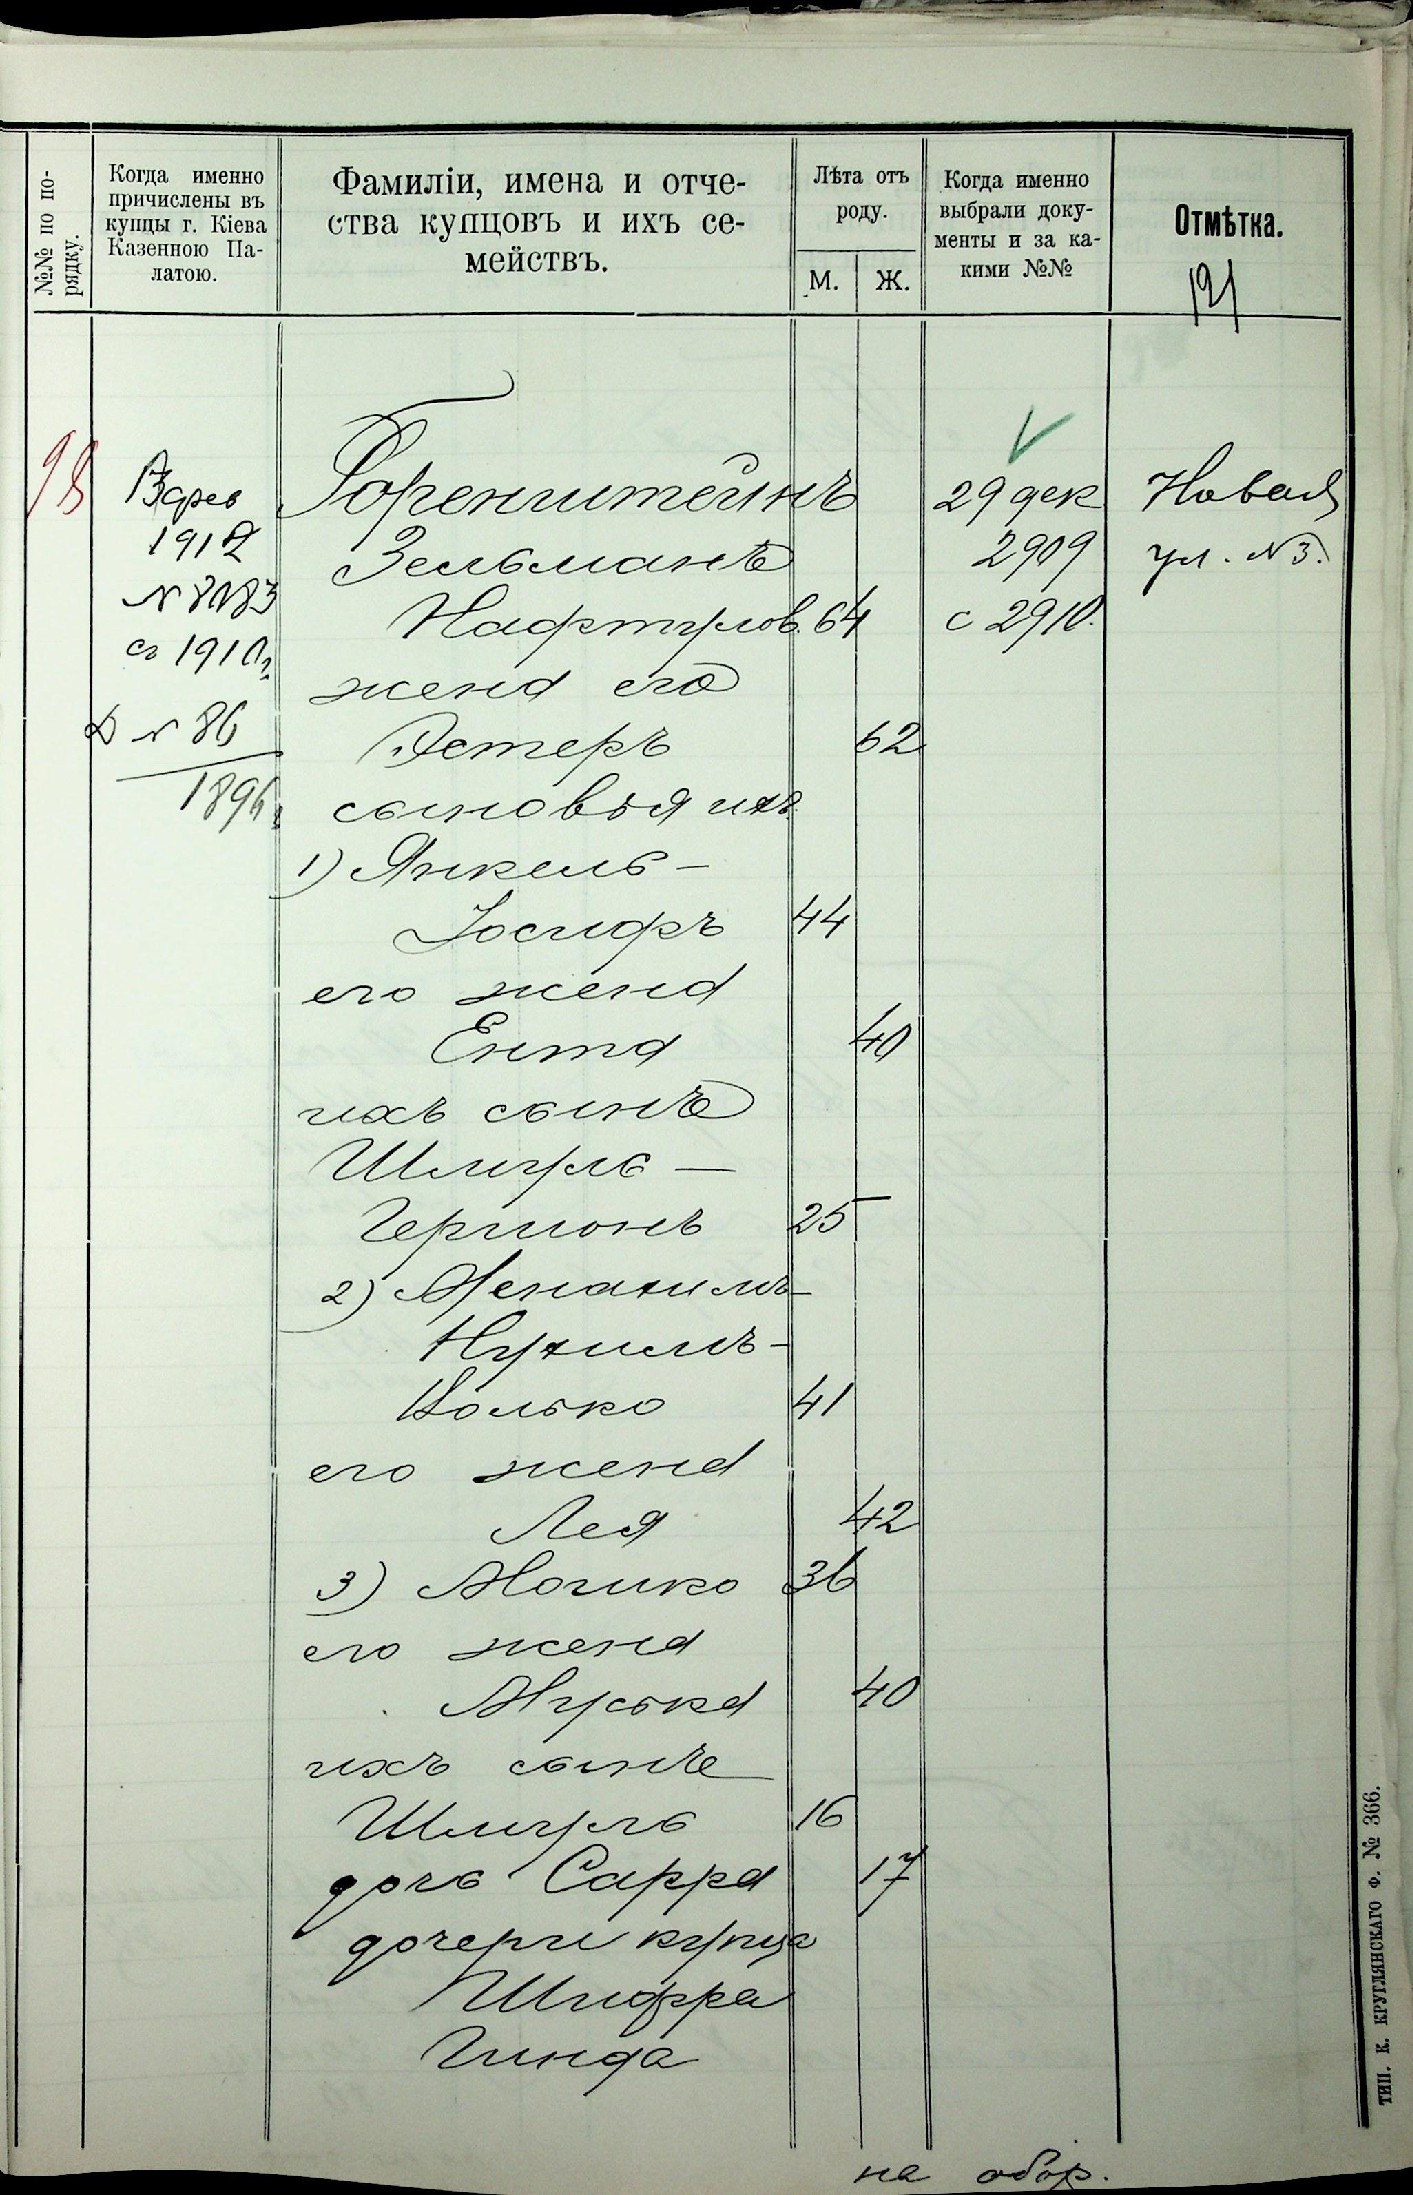 №№ по по-
рядку.
Когда именно
причислены въ
купцы г. Кіева
Казенною Па-
латою.
Фамиліи, имена и отче-
ства купцовъ и ихъ се-
мействъ.
Лѣта отъ
роду.
М.
Ж.
Когда именно
выбрали доку-
менты и за ка-
кими №№
Отмѣтка.
191
98
фев
1912
№ 8083
съ 1910г.
№ 86
1896г
Горенштейнъ
Зельманъ
Нафтулов. 64
жена его
Эстеръ 62
сыновья ихъ
1) Янкель-
Іосифъ 44
его жена
Ента 40
ихъ сынъ
Шмуль -
Гершонъ 25
2) Менахимъ-
Нухимъ-
Волько 41
его жена
Лея 42
3) Мошко 36
его жена
Муська 40
ихъ сынъ
Шмуль 16
дочь Сарра 17
дочери купца
Шифра
Гинда
29 дек
2909
с 2910.
Новая
ул. №3.
на обор.
ТИП. К. КРУГЛЯНСКАГО Ф. № 366.